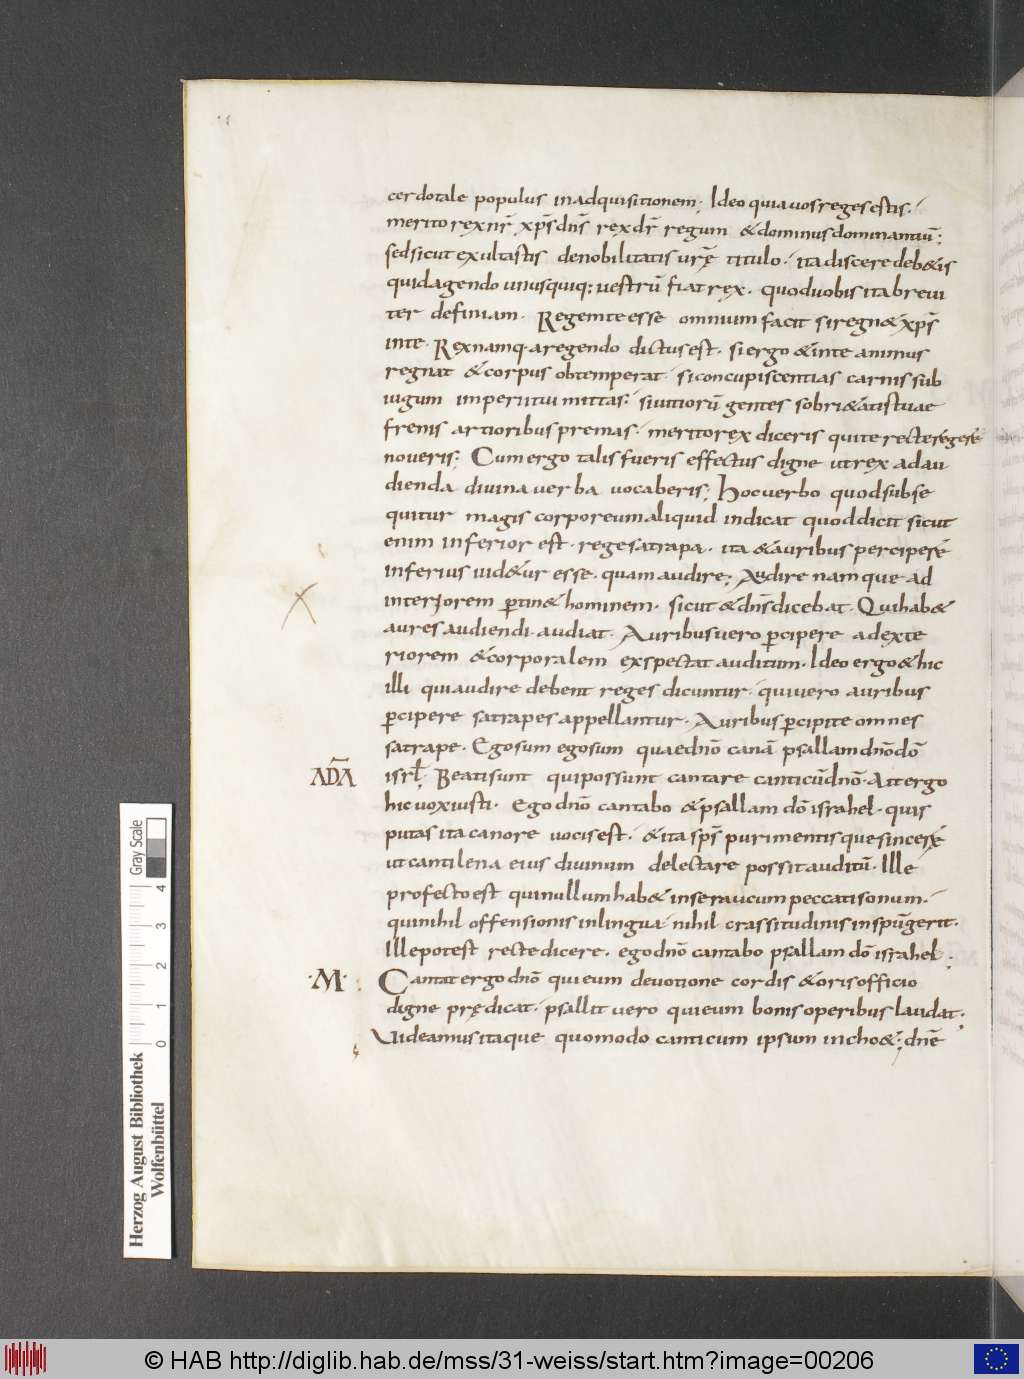 cerdotale populus inadquisitionem; Ideo quia uos reges estis.
merito rex nr̄ xp̄s dn̄s rex dr̄ regum & dominus dominantiū;
sed sicut exultastis de nobilitatis ur̄ę titulo. ita discere deb&is
quid agendo unusquiq; uestrū fiat rex. quod uobis ita breui
ter definiam. Regem te esse omnium facit si regn& xp̄s
in te. Rex namq. a regendo dictus est. si ergo & in te animus
regnat & corpus obtemperat. si concupiscentias carnis sub
iugum imperii tui mittas. si uitiorū gentes sobri&atis tuae
frenis artioribus premas. merito rex diceris qui te recte regere
noueris; Cum ergo talis fueris effectus digne ut rex ad au
dienda diuina uerba uocaberis; Hoc uerbo quod subse
quitur magis corporeum aliquid indicat quod dicit sicut
enim inferior est. rege satrapa. ita & auribus percipere
inferius uid&ur esse. quam audire; Audire namque ad
interiorem ꝑtin& hominem. sicut & dn̄s diceb at. Qui hab&
aures audiendi. audiat. Auribus uero ꝑcipere ad exte
riorem & corporalem exspectat auditum. Ideo ergo & hic
illi qui audire debent reges dicuntur. qui uero auribus
ꝑcipere satrapes appellantur. Auribus ꝑcipite omnes
satrape. Ego sum ego sum quae dnō canā psallam dnō dō
ADA isrl̄. Beati sunt qui possunt cantare canticū dnō. At ergo
hic uox iusti. Ego dnō cantabo & psallam dō israhel. quis
putas ita canore uocis est. & ita sp̄s puri mentisque sincere
ut cantilena eius diuinum delectare possit auditū. Ille
profecto est qui nullum hab& in se raucum peccati sonum.
qui nihil offensionis in lingua nihil crassitudinis in spū gerit.
Ille potest recte dicere. ego dnō cantabo psallam dō israhel.
·M· Cantat ergo dnō qui eum deuotione cordis & oris officio
digne prędicat. psallit uero qui eum bonis operibus laudat.
Uideamus itaque quomodo canticum ipsum incho&; dnē
Gray Scale
0 1 2 3 4
Herzog August Bibliothek
Wolfenbüttel
© HAB http://diglib.hab.de/mss/31-weiss/start.htm?image=00206